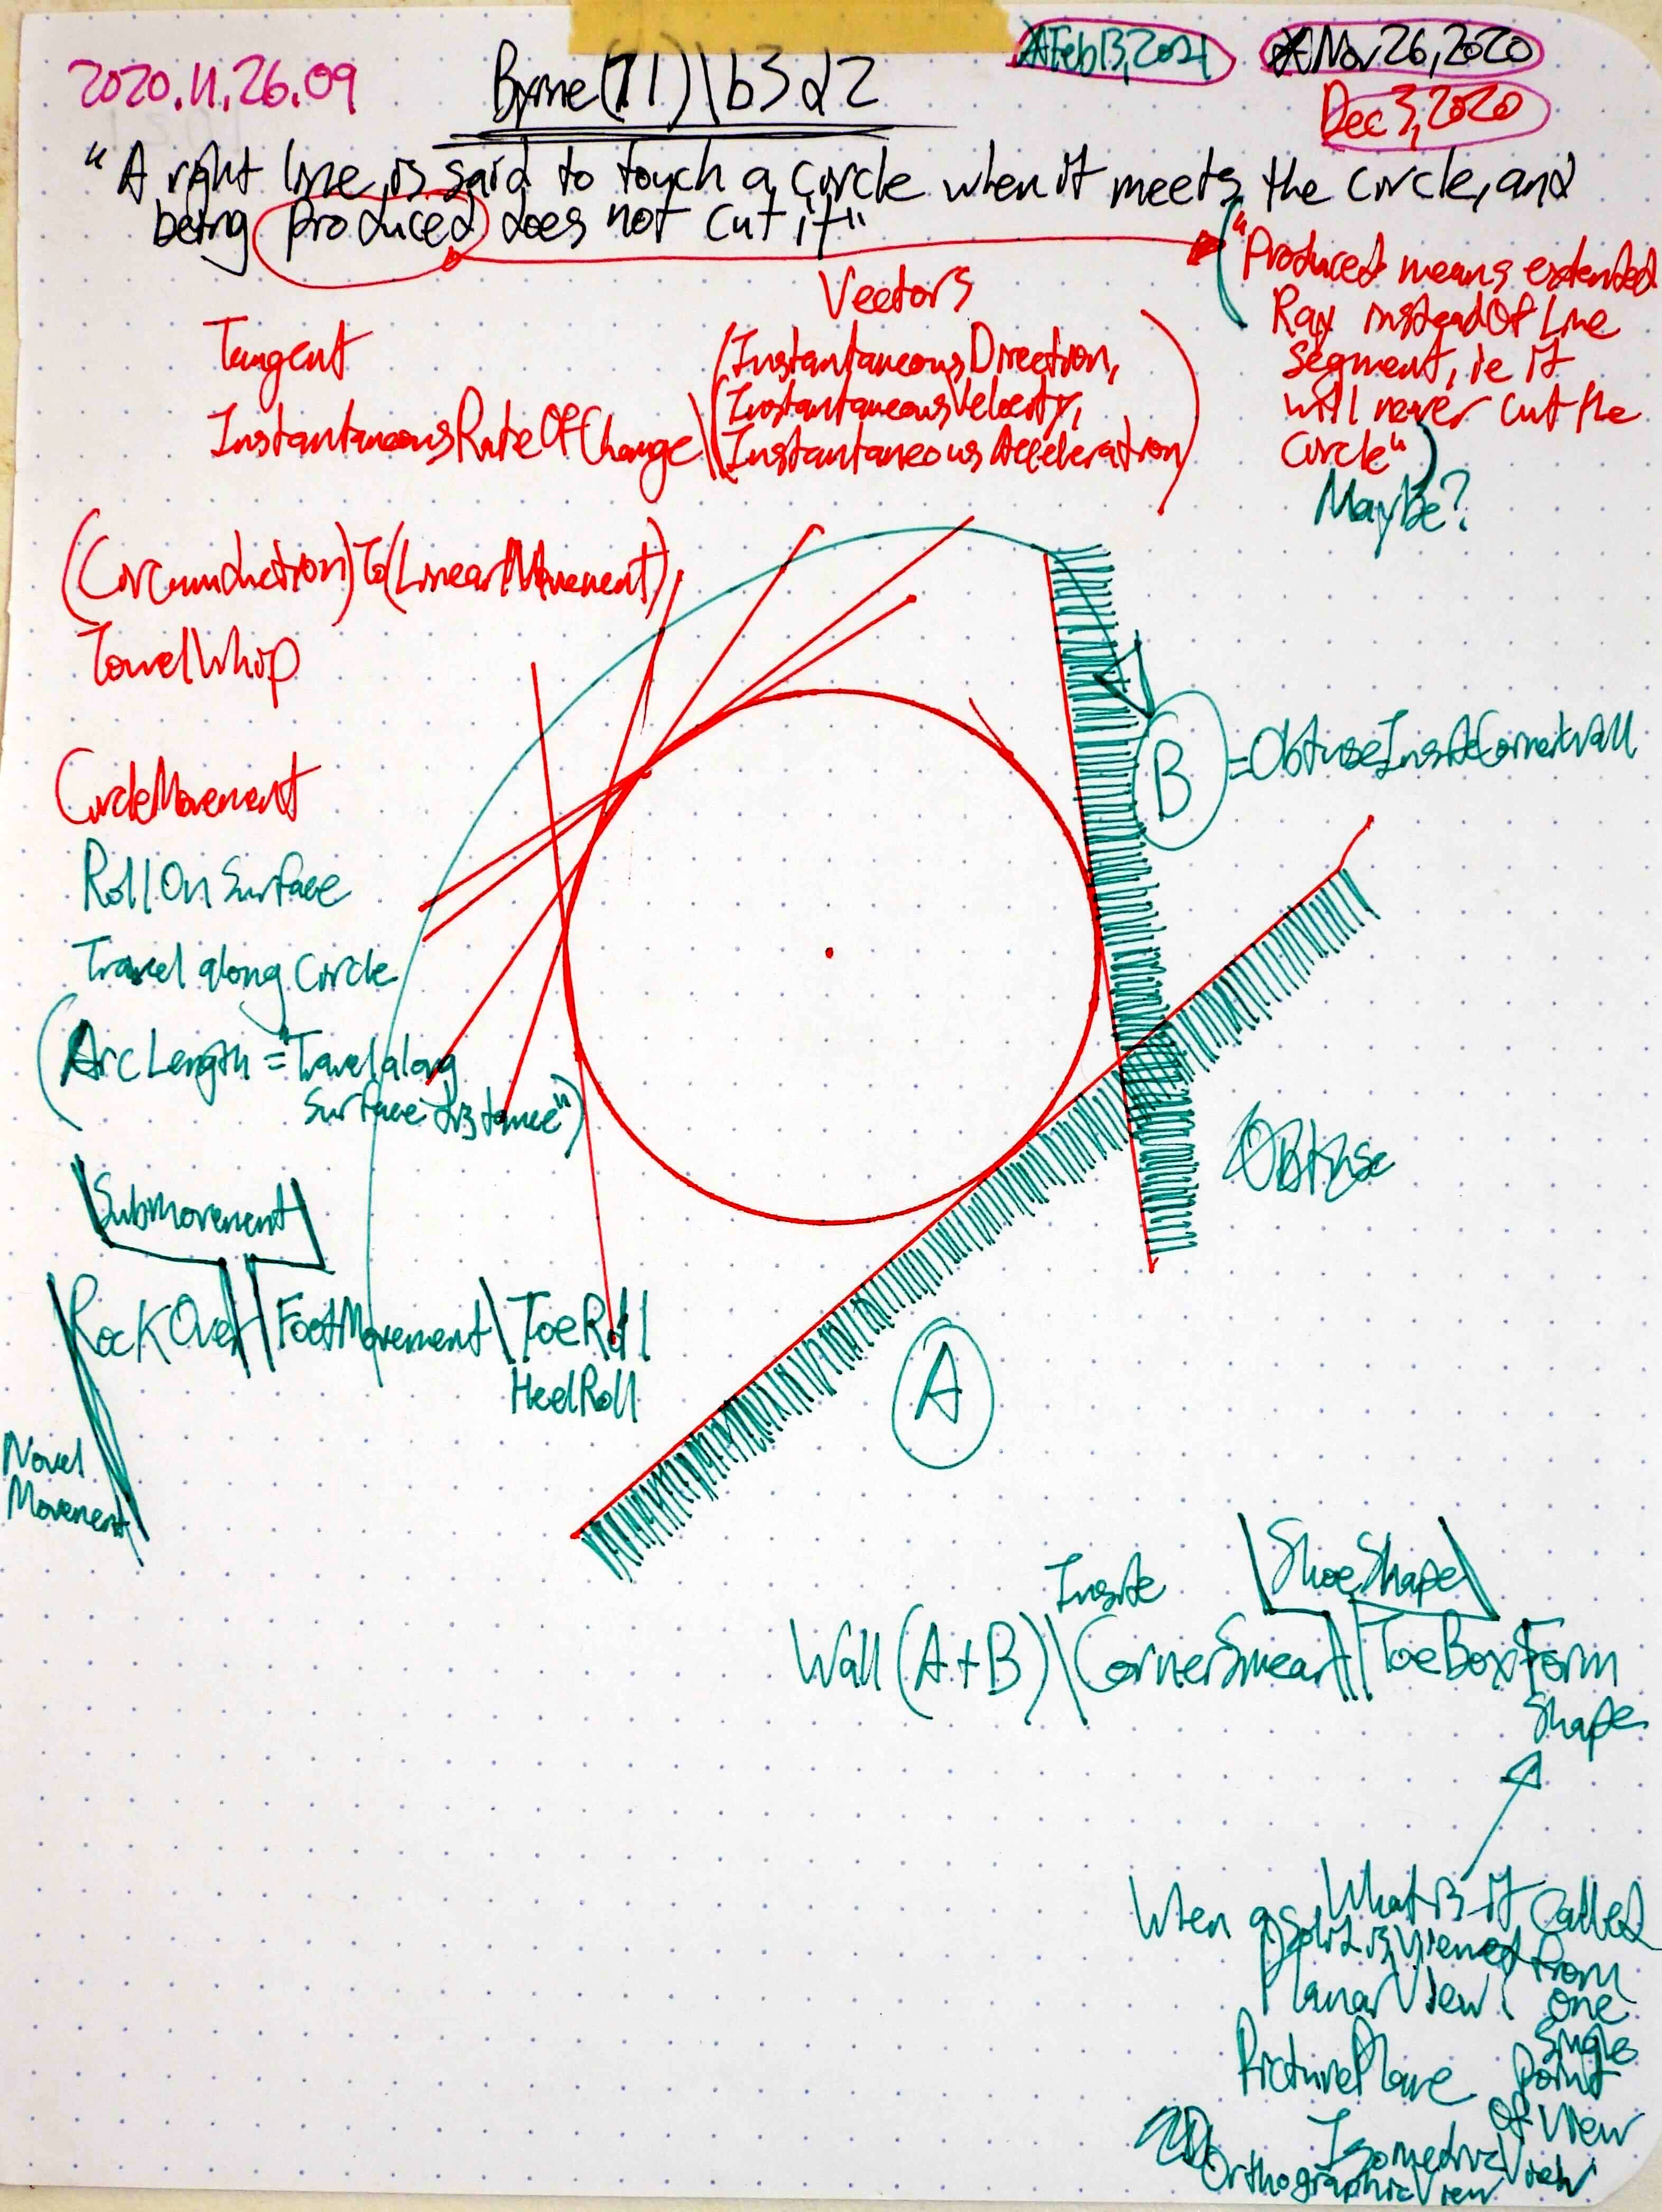 2020.11.26.09
Byrne(71)\b3d2
Feb 13, 2021
Nov 26, 2020
Dec 3, 2020
"A right line is said to touch a circle when it meets the circle, and
being produced does not cut it"
"Produced means extended
Ray insteadOf Line
Segment, ie it
will never cut the
Circle"
MayBe?
Vectors
Tangent
(InstantaneousDirection,
InstantaneousVelocity,
InstantaneousRateOfChange\
InstantaneousAcceleration)
(Circumduction)To(LinearMovement)
TowelWhip
CircleMovement
RollOnSurface
Travel along Circle
(ArcLength = "Travel along
Surface Distance")
B = ObtuseInsideCornerWall
Obtuse
SubMovement
RockOver\FootMovement\ToeRoll
HeelRoll
Novel
Movement
A
ShoeShape
Inside
Wall(A+B)\CornerSmear\ToeBoxForm
Shape
What is it Called
When a Solid is Viewed from
PlanarView? one
Single
PicturePlane Point
of View
2D IsometricView
OrthographicView